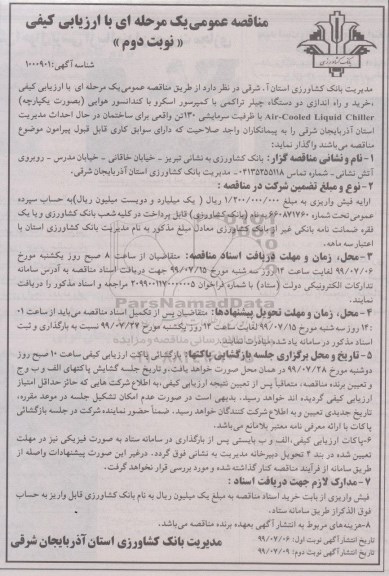 مناقصه عمومی یک مرحله ای با ارزیابی کیفی
« نوبت دوم »
بانک کشاورزی
شناسه آگهی: ۱۰۰۰۹۰۱
مدیریت بانک کشاورزی استان آ. شرقی در نظر دارد از طریق مناقصه عمومی یک مرحله ای با ارزیابی کیفی
،خرید و راه اندازی دو دستگاه چیلر تراکمی با کمپرسور اسکرو با کندانسور هوایی (بصورت یکپارچه)
Air-Cooled Liquid Chiller با ظرفیت سرمایشی ۱۳۰تن واقعی برای ساختمان در حال احداث مدیریت
استان آذربایجان شرقی را به پیمانکاران واجد صلاحیت که دارای سوابق کاری قابل قبول پیرامون موضوع
مناقصه می‌باشند واگذار نماید:
۱- نام و نشانی مناقصه گزار: بانک کشاورزی به نشانی تبریز - خیابان خاقانی - خیابان مدرس - روبروی
آتش نشانی - شماره تماس ۰۴۱۳۵۳۵۵۱۱۸- مدیریت بانک کشاورزی استان آذربایجان شرقی.
۲- نوع و مبلغ تضمین شرکت در مناقصه :
ارایه فیش واریزی به مبلغ ۱/۲۰۰/۰۰۰/۰۰۰ ریال ( یک میلیارد و دویست میلیون ریال)به حساب سپرده
عمومی تحت شماره ۶۶۰۸۷۱۷۶۰ بنام (بانک کشاورزی) قابل پرداخت در کلیه شعب بانک کشاورزی و یا یک
فقره ضمانت نامه بانکی غیر از بانک کشاورزی معادل مبلغ مذکور به نام مدیریت بانک کشاورزی استان با
اعتبار سه ماهه.
۳- محل، زمان و مهلت دریافت اسناد مناقصه: متقاضیان از ساعت ۸ صبح روز یکشنبه مورخ
۹۹/۰۷/۰۶ لغایت ساعت ۱۴ روز سه شنبه مورخ ۹۹/۰۷/۱۵ جهت دریافت اسناد مناقصه به آدرس سامانه
تدارکات الکترونیکی دولت (ستاد) با شماره فراخوان ۲۰۹۹۰۰۱۱۷۰۰۰۰۰۵ مراجعه و اسناد مذکور را دریافت
نمایند.
۴- محل، زمان و مهلت تحویل پیشنهادها: متقاضیان پس از تکمیل اسناد مناقصه می‌باید از ساعت ۰۱
:۱۴ روز سه شنبه مورخ ۹۹/۰۷/۱۵ لغایت ساعت ۱۴ روز یکشنبه مورخ ۹۹/۰۷/۲۷ نسبت به بارگذاری و ثبت
اسناد مذکور در سامانه یاد شده مبادرت نمایند.
۵- تاریخ و محل برگزاری جلسه بازگشایی پاکتها: بازگشائی پاکت ارزیابی کیفی ساعت ۱۰ صبح روز
دوشنبه مورخ ۹۹/۰۷/۲۸ در همان محل صورت خواهد یافت. و تاریخ جلسه گشایش پاکتهای الف و ب و ج
و تعیین برنده مناقصه، متعاقباً پس از تعیین نتیجه ارزیابی کیفی، به اطلاع شرکت هایی که حائز حداقل امتیاز
ارزیابی کیفی گردیده اند خواهد رسید. بدیهی است در صورت عدم امکان تشکیل جلسه در موعد مقرر،
تاریخ جدیدی تعیین و به اطلاع شرکت کنندگان خواهد رسید. ضمناً حضور نماینده شرکت در جلسه بازگشائی
پاکات با ارائه معرفی نامه معتبر بلامانع می‌باشد.
۶- پاکات ارزیابی کیفی ،الف و ب بایستی پس از بارگذاری در سامانه ستاد به صورت فیزیکی نیز در مهلت
تعیین شده در بند ۴ تحویل دبیرخانه مدیریت به نشانی فوق گردد. درغیر این صورت پیشنهادات واصله از
طریق سامانه از فرآیند مناقصه کنار گذاشته شده و مورد بررسی قرار نخواهد گرفت.
۷- مدارک لازم جهت دریافت اسناد :
فیش واریزی از بابت خرید اسناد مناقصه به مبلغ یک میلیون ریال به نام بانک کشاورزی قابل واریز به حساب
فوق الذکر از طریق سامانه ستاد.
۸-هزینه‌های مربوط به انتشار آگهی بعهده برنده مناقصه می‌باشد.
تاریخ انتشار آگهی نوبت اول: ۹۹/۰۷/۰۶
تاریخ انتشار آگهی نوبت دوم: ۹۹/۰۷/۰۹
مدیریت بانک کشاورزی استان آذربایجان شرقی
ParsNamadData